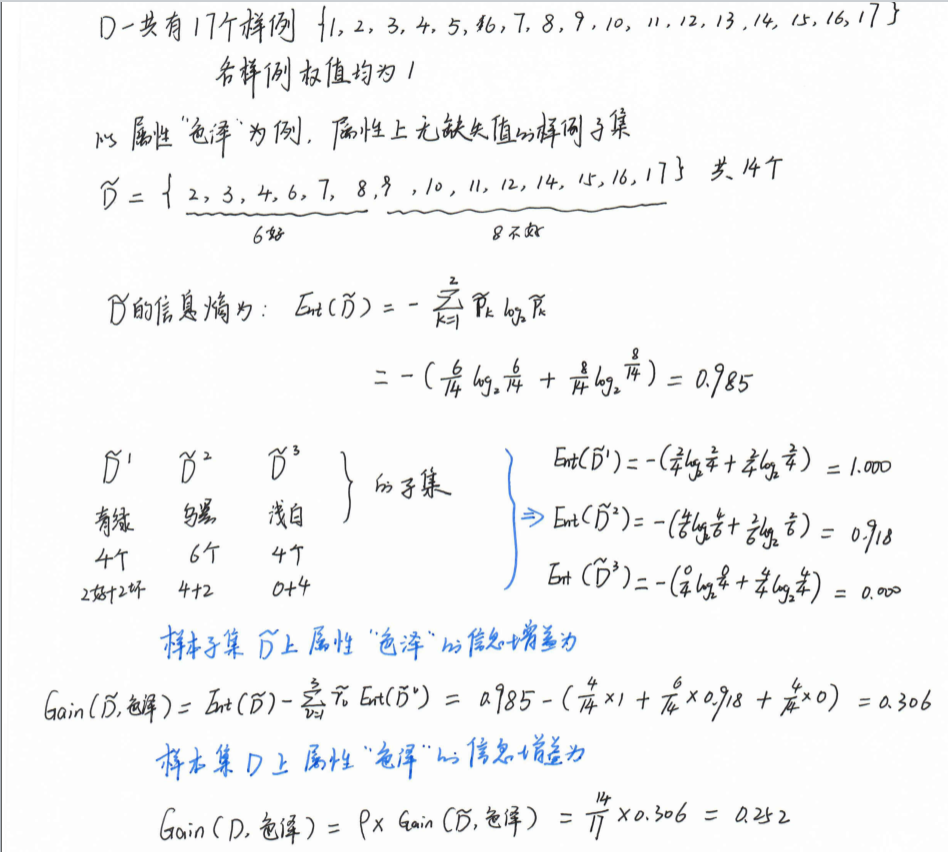 D一共有17个样例 {1, 2, 3, 4, 5, 6, 7, 8, 9, 10, 11, 12, 13, 14, 15, 16, 17}
各样例权值均为1
以属性"色泽"为例, 属性上无缺失值的样例子集
D̃ = { 2, 3, 4, 6, 7, 8, 9, 10, 11, 12, 14, 15, 16, 17 } 共14个
6好 8不好
D̃的信息熵为: Ent(D̃) = - ∑_{k=1}^{2} p̃_k log₂ p̃_k
= -( 6/14 log₂ 6/14 + 8/14 log₂ 8/14 ) = 0.985
D̃¹ D̃² D̃³ } 的子集
青绿 乌黑 浅白
4个 6个 4个
2好+2坏 4+2 0+4
⇒ Ent(D̃¹) = -( 2/4 log₂ 2/4 + 2/4 log₂ 2/4 ) = 1.000
Ent(D̃²) = -( 4/6 log₂ 4/6 + 2/6 log₂ 2/6 ) = 0.918
Ent(D̃³) = -( 0/4 log₂ 0/4 + 4/4 log₂ 4/4 ) = 0.000
样本子集 D̃ 上属性"色泽"的信息增益为
Gain(D̃, 色泽) = Ent(D̃) - ∑_{v=1}^{3} r̃_v Ent(D̃ᵛ) = 0.985 - ( 4/14 × 1 + 6/14 × 0.918 + 4/14 × 0 ) = 0.306
样本集 D 上属性"色泽"的信息增益为
Gain(D, 色泽) = ρ× Gain(D̃, 色泽) = 14/17 × 0.306 = 0.252